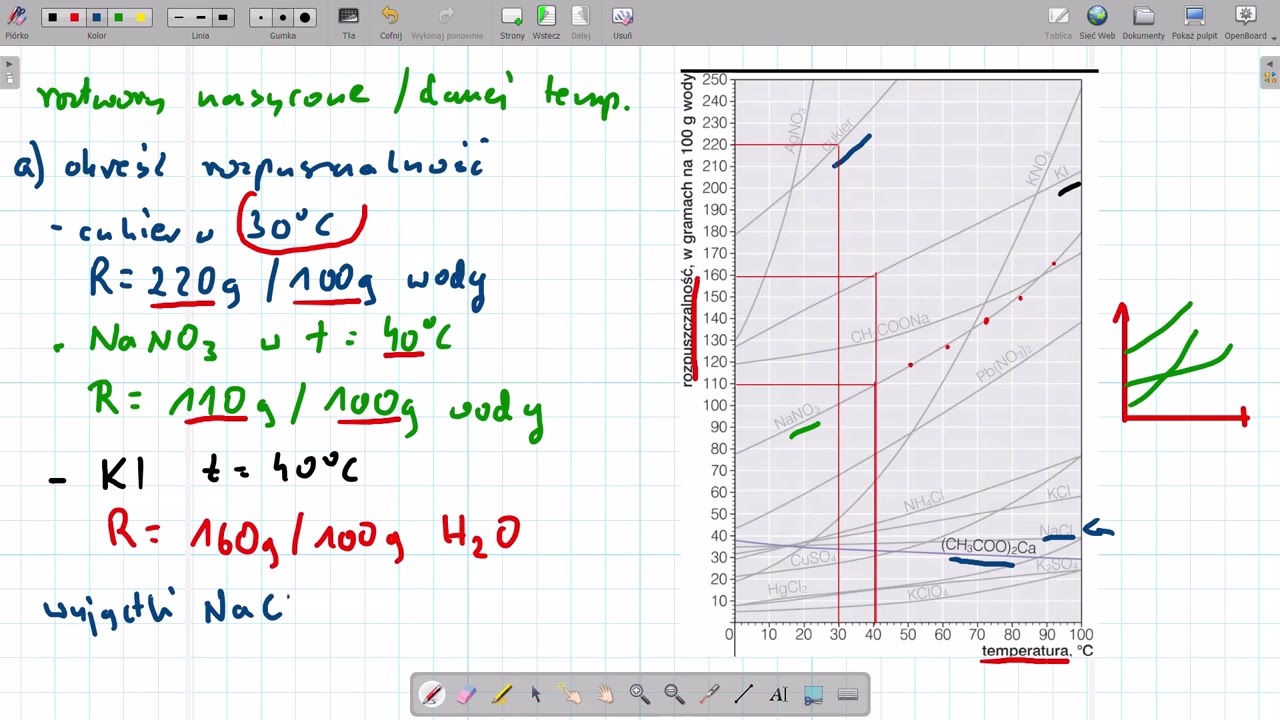 Piórko Kolor Linia Gumka Tła Cofnij Wykonaj ponownie Strony Wstecz Dalej Usuń Tablica Sieć Web Dokumenty Pokaż pulpit OpenBoard
roztwory nasycone / danej temp.
a) określ rozpuszczalność
- cukier w 30°C
R = 220g / 100g wody
- NaNO3 w t = 40°C
R = 110g / 100g wody
- KI t = 40°C
R = 160g / 100g H2O
wyjątki NaC
rozpuszczalność, w gramach na 100 g wody
250
240
230
220
210
200
190
180
170
160
150
140
130
120
110
100
90
80
70
60
50
40
30
20
10
AgNO3
cukier
KNO3
KI
CH3COONa
Pb(NO3)2
NaNO3
NH4Cl
KCl
NaCl
(CH3COO)2Ca
CuSO4
K2SO4
HgCl2
KClO4
0 10 20 30 40 50 60 70 80 90 100
temperatura, °C
AI